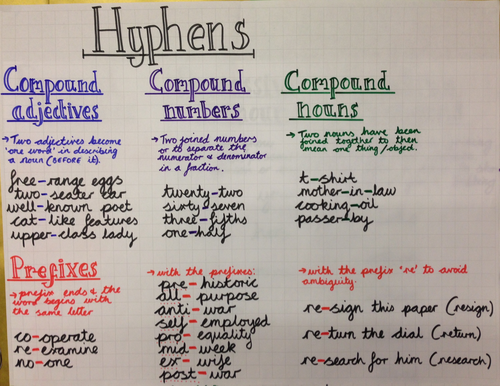 Hyphens
Compound
adjectives
→ Two adjectives become
'one word' in describing
a noun (BEFORE it).
free-range eggs
two-seater car
well-known poet
cat-like features
upper-class lady
Compound
numbers
→ Two joined numbers
or to separate the
numerator & denominator
in a fraction.
twenty-two
sixty-seven
three-fifths
one-half
Compound
nouns
→ Two nouns have been
joined together to then
mean one thing/object.
t-shirt
mother-in-law
cooking-oil
passer-by
Prefixes
→ prefix ends & the
word begins with
the same letter
co-operate
re-examine
no-one
→ with the prefixes:
pre-historic
all-purpose
anti-war
self-employed
pro-equality
mid-week
ex-wife
post-war
→ with the prefix 're' to avoid
ambiguity.
re-sign this paper (resign)
re-turn the dial (return)
re-search for him (research)